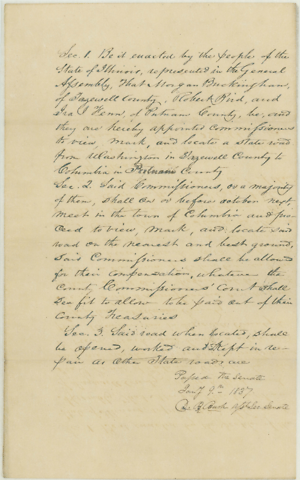 Sec. 1. Be it enacted by the people of the
State of Illinois, represented in the General
Assembly, That Morgan Buckingham,
of Tazewell County, Robert Bird, and
Ira I. Fenn, of Putnam County, be, and
they are hereby appointed Commissioners
to view, mark, and locate a State road
from Washington in Tazewell County to
Columbia in Putnam County
Sec. 2. Said Commissioners, or a majority
of them, shall on or before october next
meet in the town of Columbia and pro-
ceed to view, mark, and locate said
road on the nearest and best ground,
Said Commissioners shall be allowed
for their compensation, whatever the
County Commissioners' Court shall
see fit to allow to be paid out of their
County Treasuries
Sec. 3. Said road when located, shall
be opened, worked and kept in re-
pair as other State roads are
Passed the Senate
Jany 1837
Senate